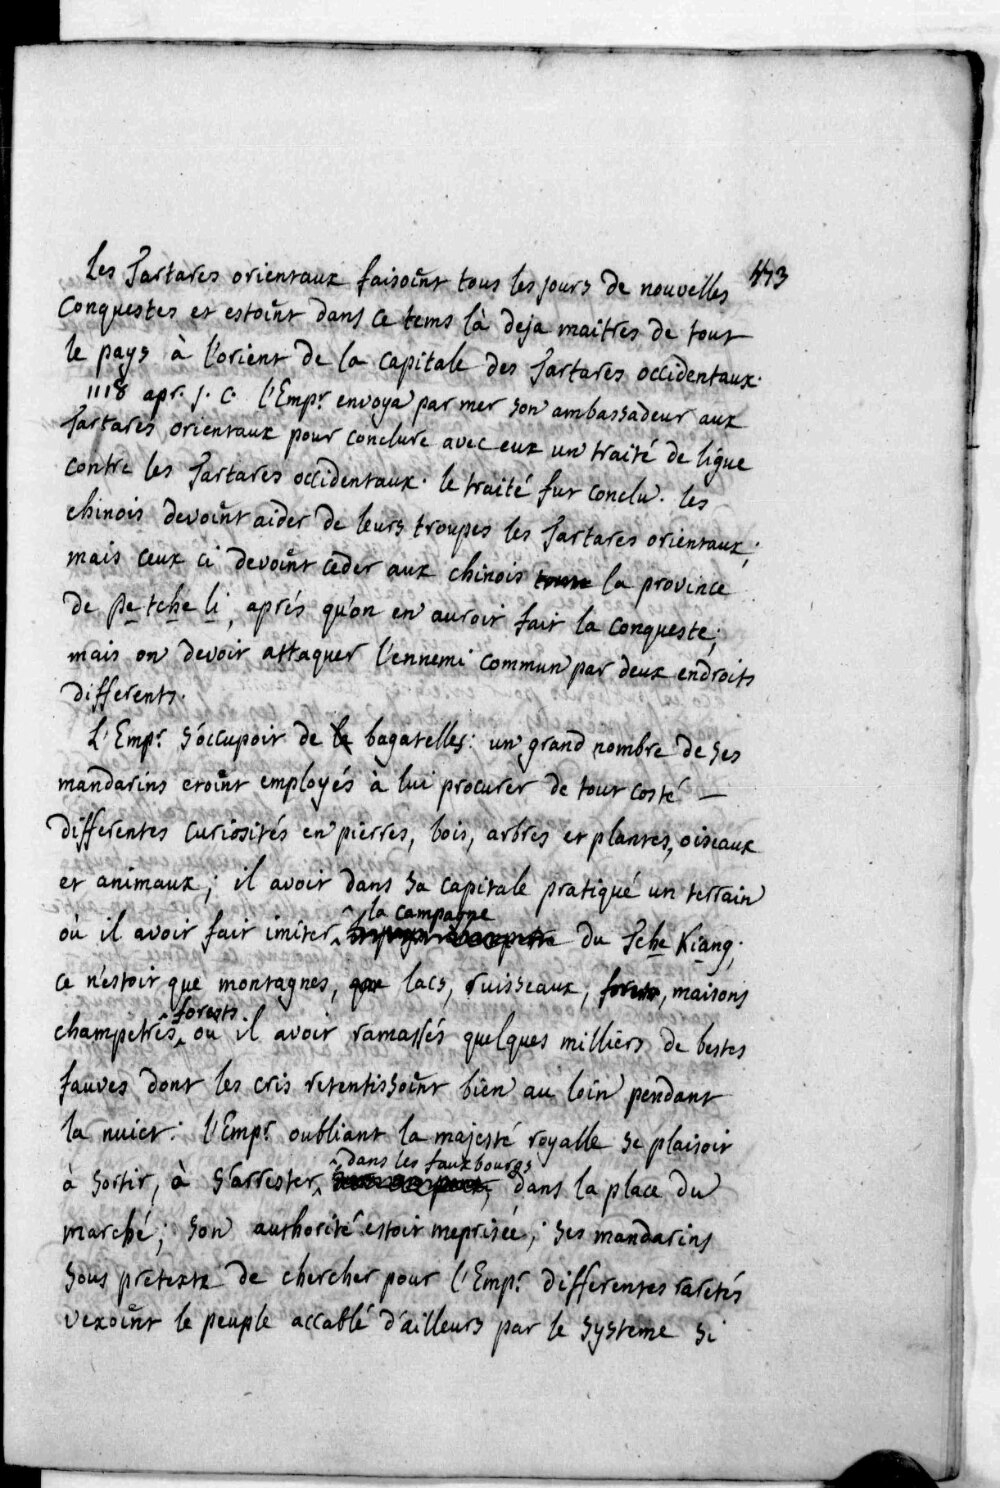 473
Les Tartares orientaux faisoint tous les jours de nouvelles
conquestes et estoint dans ce tems là deja maitres de tout
le pays à l'orient de la capitale des Tartares occidentaux.
1118 apr. J. C. l'Empr envoya par mer son ambassadeur aux
Tartares orientaux pour conclure avec eux un traité de ligue
contre les Tartares occidentaux. le traité fut conclu. les
chinois devoint aider de leurs troupes les Tartares orientaux;
mais ceux ci devoint ceder aux chinois toute la province
de Pe tche li, aprés qu'on en auroit fait la conqueste;
mais on devoit attaquer l'ennemi commun par deux endroits
differents.
L'Empr s'occupoit de le bagatelles: un grand nombre de ses
mandarins etoint employés à lui procurer de tout costé —
differentes curiosités en pierres, bois, arbres et plantes, oiseaux
et animaux; il avoit dans sa capitale pratiqué un terrain
la campagne
où il avoit fait imiter du Tche Kiang.
ce n'estoit que montagnes, que lacs, ruisseaux, forests, maisons
forests
champêtres, où il avoit ramassés quelques milliers de bestes
fauves dont les cris retentissoint bien au loin pendant
la nuict. l'Empr oubliant la majesté royalle se plaisoit
dans les fauxbourgs
à sortir, à s'arrester, dans la place du
marché; son authorité estoit meprisée; ses mandarins
sous pretexte de chercher pour l'Empr differentes raretés
vexoint le peuple accablé d'ailleurs par le systeme si